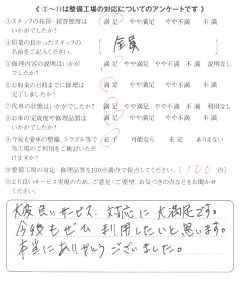 《 ③〜⑪は整備工場の対応についてのアンケートです 》
③スタッフの挨拶・接客態度は いかがでしたか? 満 足 やや満足 やや不満 不 満
④印象の良かったスタッフの 名前をご記入ください。 全員
⑤修理内容の説明はいかがでしたか 満 足 やや満足 やや不満 不 満
⑥お約束の日時までに修理は 完了しましたか? 満 足 やや満足 やや不満 不 満
⑦代車の状態はいかがでしたか? 満 足 やや満足 やや不満 不 満 利用なし
⑧お車の完成度や修理品質は いかがでしたか? 満 足 やや満足 やや不満 不 満
⑨今後も愛車の整備、トラブル等で 当工場のご利用をご検討いただけますか? 必 ず 可能なら 未 定 ありえない
⑩整備工場の対応・修理品質を100点満点で採点してください。[ 100 点]
⑪より良いサービス実現のため、ご意見・ご要望、お気づきの点などをお聞かせ
ください。
大変良いサービス、対応に大満足です。
今後もぜひ利用したいと思います。
本当にありがとうございました。